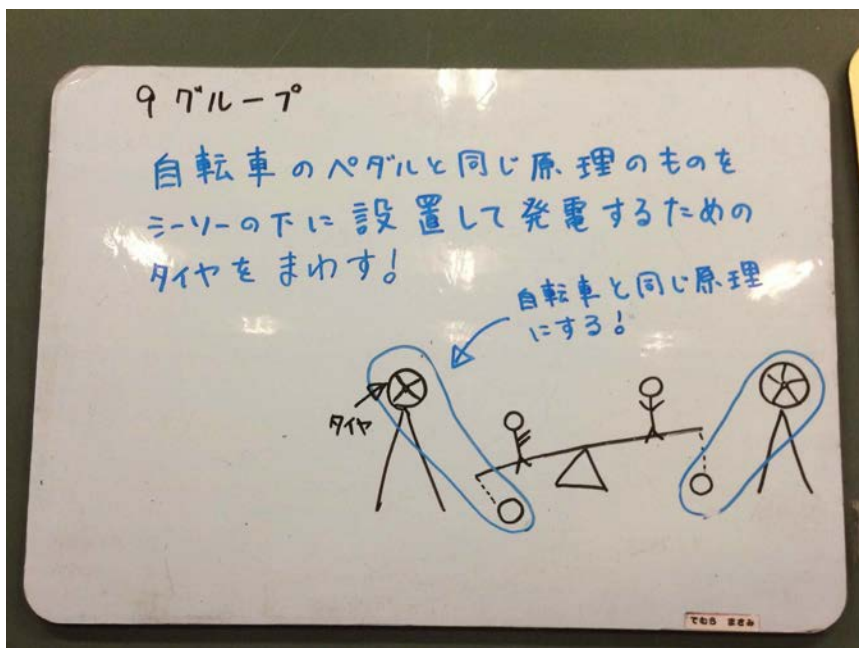 9グループ
自転車のペダルと同じ原理のものを
シーソーの下に設置して発電するための
タイヤをまわす!
自転車と同じ原理
にする!
タイヤ
てむら まさみ